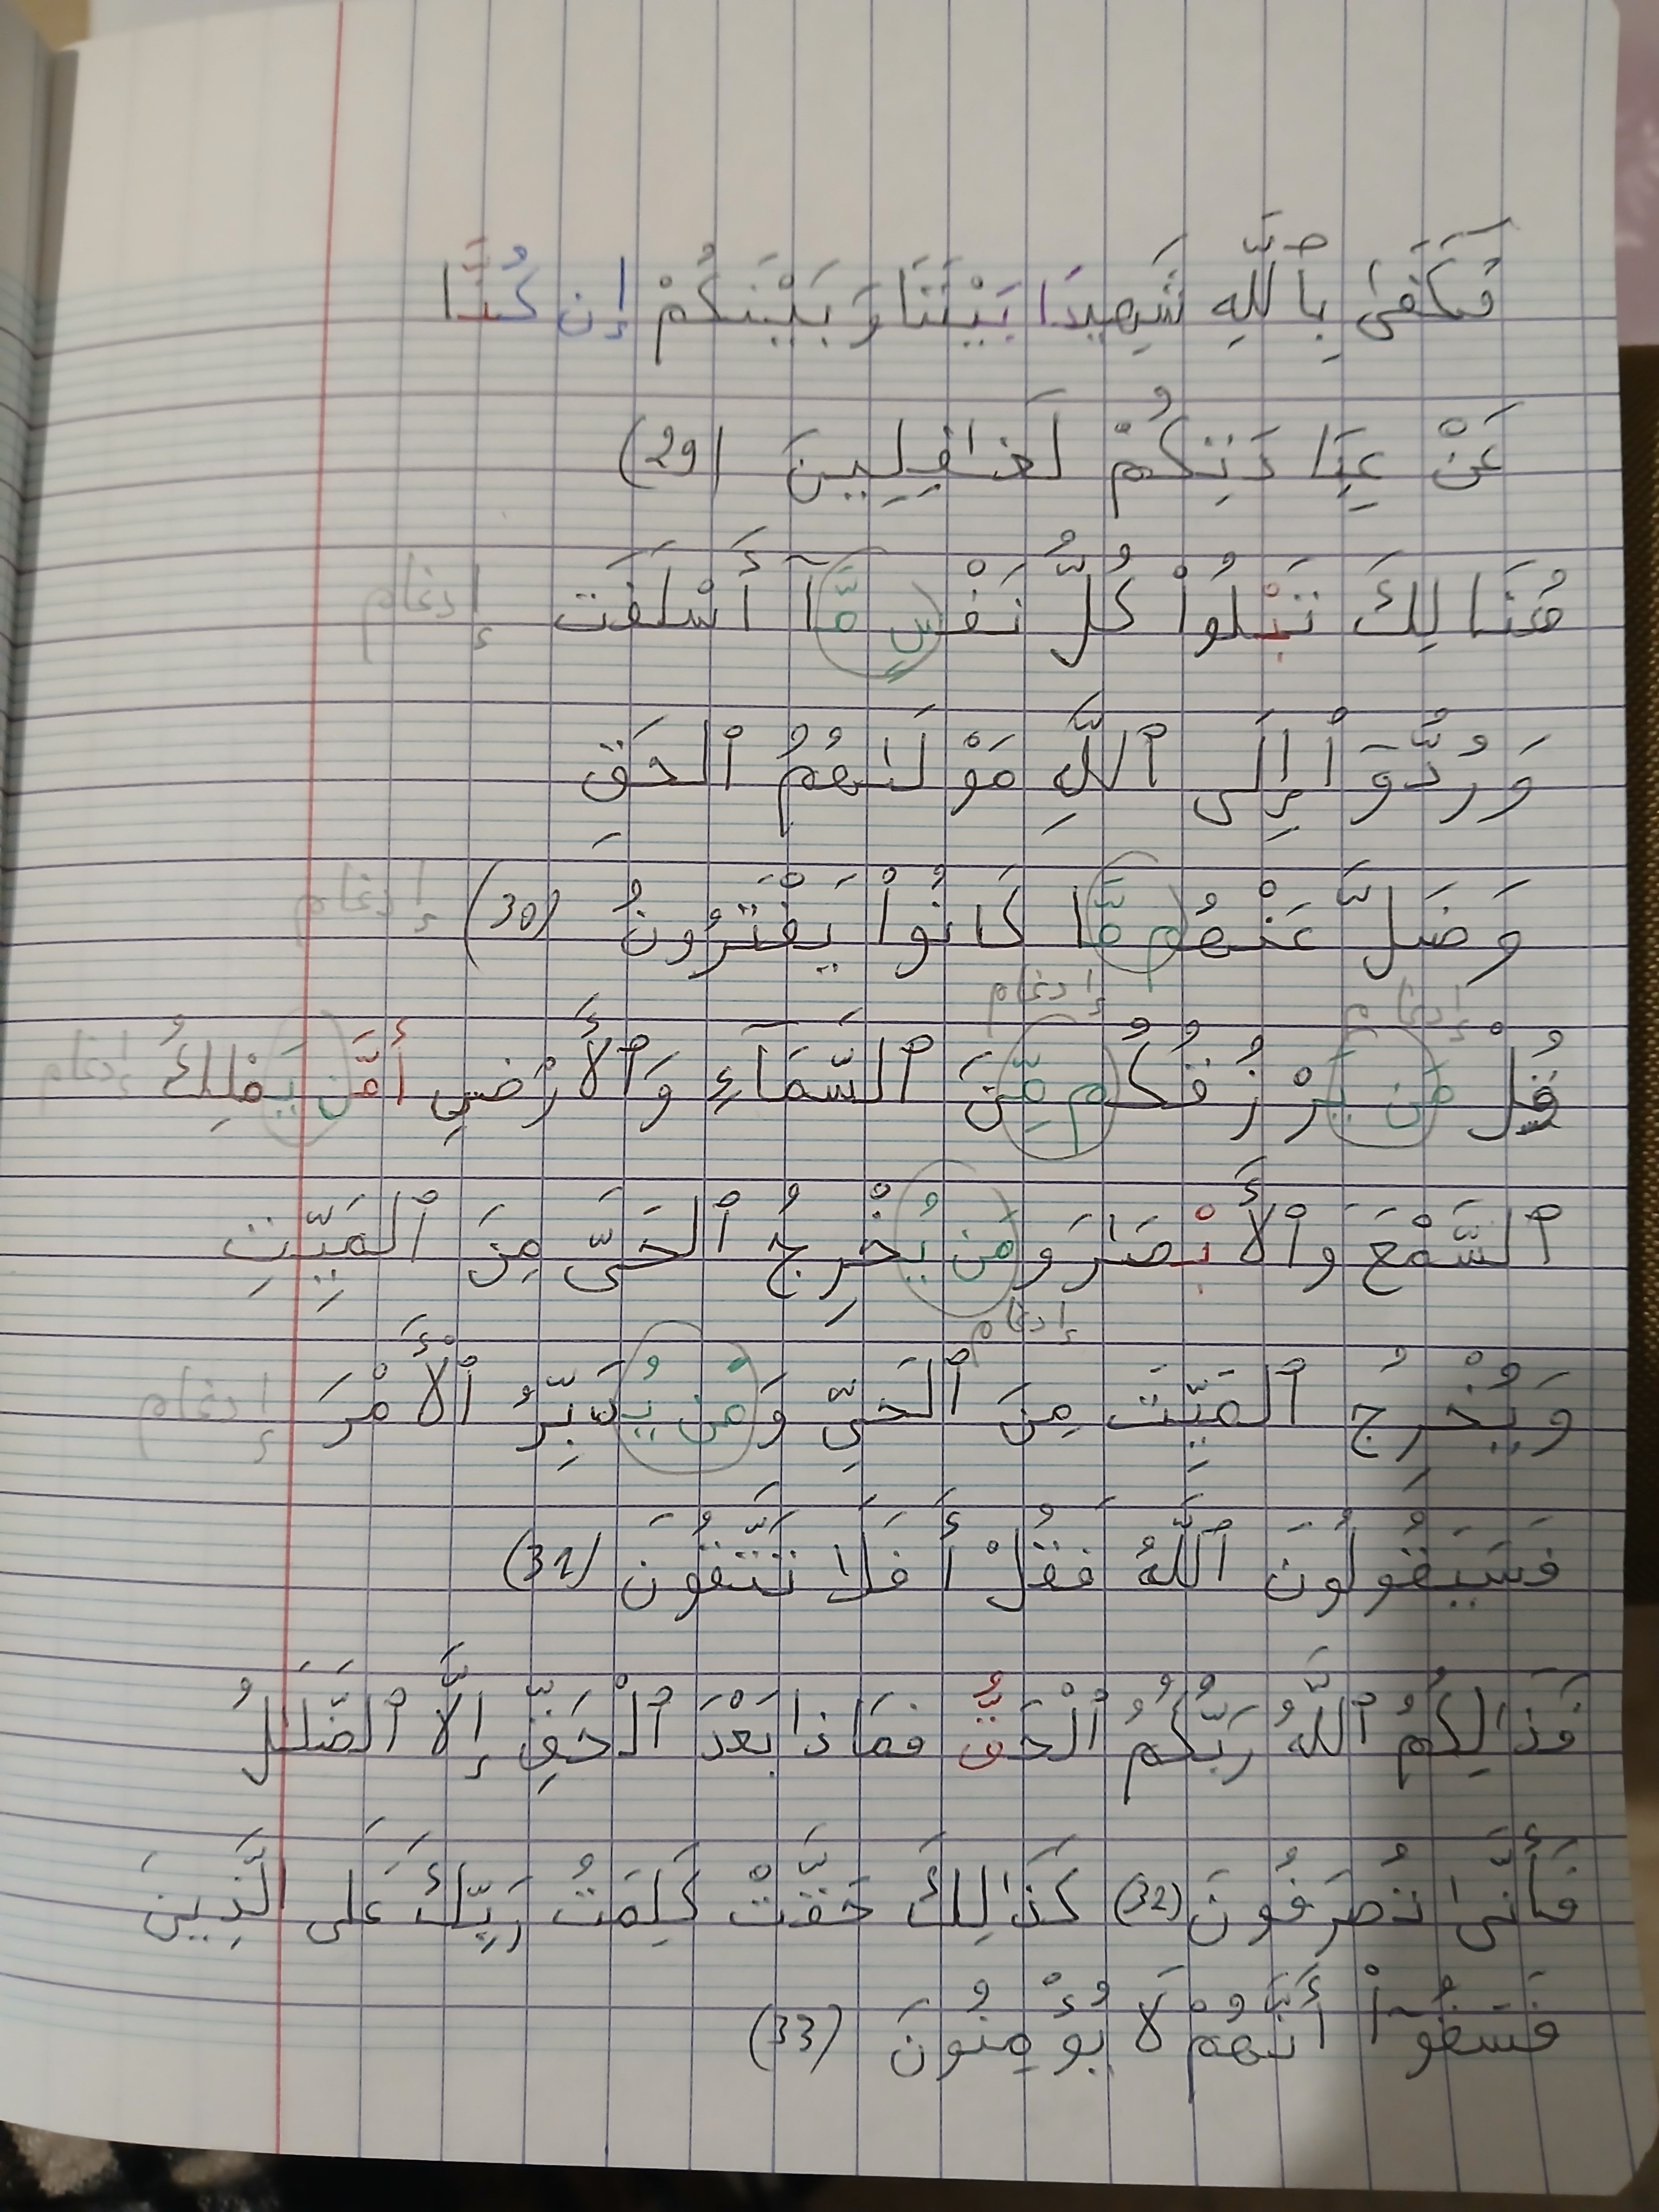 فَكَفَىٰ بِٱللَّهِ شَهِيدًا بَيْنَنَا وَبَيْنَكُمْ إِن كُنَّا
عَنْ عِبَادَتِكُمْ لَغَافِلِينَ (29)
هُنَالِكَ تَبْلُواْ كُلُّ نَفْسٍ مَّآ أَسْلَفَت إدغام
وَرُدُّوٓاْ إِلَى ٱللَّهِ مَوْلَىٰهُمُ ٱلحَقِّ
وَضَلَّ عَنْهُم مَّا كَانُواْ يَفْتَرُونُ (30) إدغام
إدغام إدغام
قُلْ مَن يَرْزُقُكُم مِّنَ ٱلسَّمَآءِ وَٱلأَرْضِ أَمَّن يَمْلِكُ إدغام
ٱلسَّمْعَ وٱلأَبْصَارَ وَمَن يُخْرِجُ ٱلحَىَّ مِنَ ٱلمَيِّتِ
إدغام
وَيُخْرِجُ ٱلمَيِّتَ مِنَ ٱلحَىِّ وَمَن يُدَبِّرُ ٱلأَمْرَ إدغام
فَسَيَقُولُونَ ٱللَّهُ فَقُلْ أَفَلَا تَتَّقُونَ (31)
فَذَٰلِكُمُ ٱللَّهُ رَبُّكُمُ ٱلْحَقُّ فَمَاذَا بَعْدَ ٱلْحَقِّ إِلَّا ٱلضَّلَٰلُ
فَأَنَّىٰ تُصْرَفُونَ (32) كَذَٰلِكَ حَقَّتْ كَلِمَتُ رَبِّكَ عَلَى الَّذِينَ
فَسَقُوٓاْ أَنَّهُمْ لَا يُؤْمِنُونَ (33)